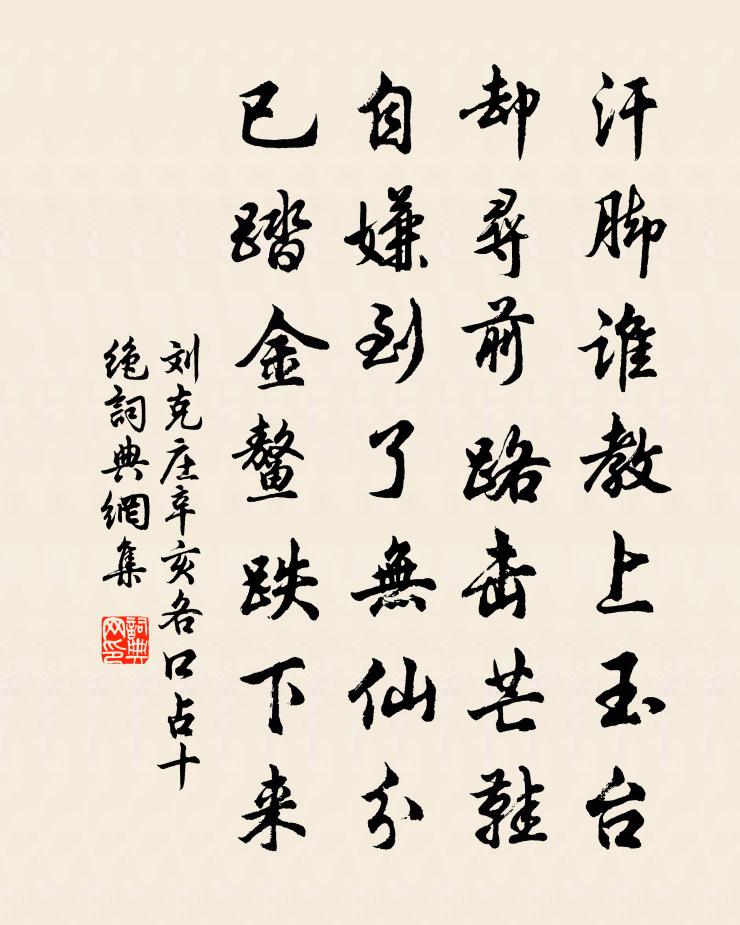 汗脚誰教上玉台
却尋前路击芒鞋
自嫌到了無仙分
已踏金鳌跌下来
刘克庄辛亥各口占十
绝詞典網集
詞典网印